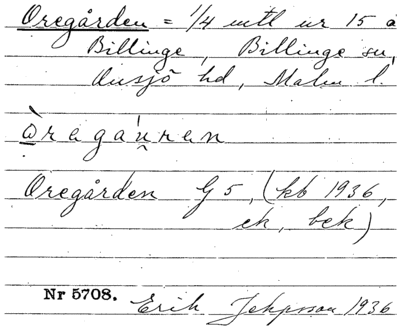 Oregården = 1/4 mtl nr 15 å
Billinge, Billinge sn,
Onsjö hd, Malm l.
Òregáu̯ren
Oregården G 5, (kb 1936,
ek, bek)
Nr 5708. Erik Jeppsson 1936